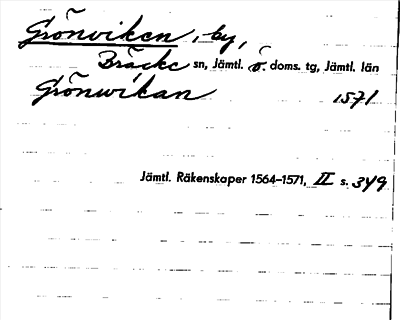 Grönviken, by,
Bräcke sn, Jämtl. ö. doms. tg, Jämtl. län
Grönwikan 1571
Jämtl. Räkenskaper 1564–1571, II s. 349